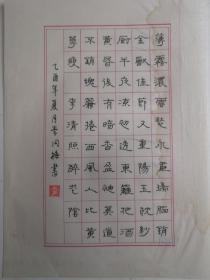 薄霧濃雲愁永晝瑞腦銷
金獸佳節又重陽玉枕紗
厨半夜涼初透東籬把酒
黃昏後有暗香盈袖莫道
不銷魂簾捲西風人比黃
花瘦 李清照醉花陰
乙酉年夏月李润書